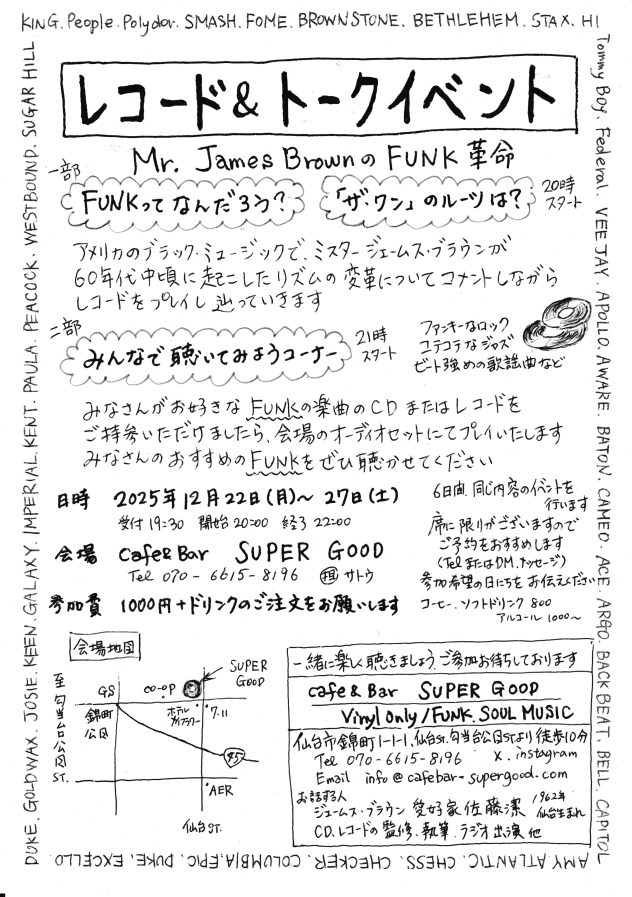 KING. People. Polydor. SMASH. FOME. BROWNSTONE. BETHLEHEM. STAX. HI
Tommy Boy. Federal. VEE JAY. APOLLO. AWARE. BATON. CAMEO. ACE. ARGO. BACK BEAT. BELL. CAPITOL
レコード&トークイベント
Mr. James BrownのFUNK革命
一部
FUNKってなんだろう?
「ザ・ワン」のルーツは?
20時
スタート
アメリカのブラック・ミュージックで、ミスタージェームス・ブラウンが
60年代中頃に起こしたリズムの変革についてコメントしながら
レコードをプレイし辿っていきます
二部
みんなで聴いてみようコーナー
21時
スタート
ファンキーなロック
コテコテなジャズ
ビート強めの歌謡曲など
みなさんがお好きなFUNKの楽曲のCDまたはレコードを
ご持参いただけましたら、会場のオーディオセットにてプレイいたします
みなさんのおすすめのFUNKをぜひ聴かせてください
日時 2025年12月22日(月)〜27日(土)
受付19:30 開始20:00 終了22:00
会場 Cafe&Bar SUPER GOOD
Tel 070-6615-8196 担 サトウ
参加費 1000円+ドリンクのご注文をお願いします
6日間、同じ内容のイベントを
行います
席に限りがございますので
ご予約をおすすめします
(TelまたはDM、メッセージ)
参加希望の日にちをお伝えください
コーヒー、ソフトドリンク 800
アルコール 1000〜
会場地図
至勾当台公園ST.
GS
錦町
公園
co-op
SUPER
GOOD
ホテル
7.11
45
AER
仙台ST.
一緒に楽しく聴きましょう、ご参加お待ちしております
cafe & Bar SUPER GOOD
Vinyl only/FUNK. SOUL MUSIC
仙台市錦町1-1-1、仙台St.勾当台公園STより徒歩10分
Tel 070-6615-8196 X. instagram
Email info@cafebar-supergood.com
お話する人
ジェームス・ブラウン愛好家 佐藤潔 1962年
仙台生まれ
CD、レコードの監修、執筆、ラジオ出演他
AMY. ATLANTIC. CHESS. CHECKER. COLUMBIA. EPIC. DUKE. EXCELLO.
DUKE. GOLDWAX. JOSIE. KEEN. GALAXY. IMPERIAL. KENT. PAULA. PEACOCK. WESTBOUND. SUGAR HILL